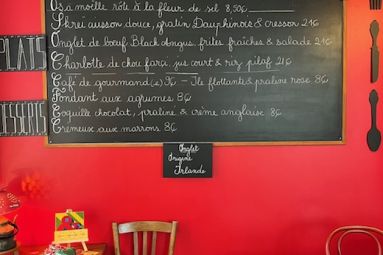 Os à moëlle rôti à la fleur de sel 8,50€
Skrei cuisson douce, gratin Dauphinois & cresson 24€
PLATS
Onglet de bœuf Black Angus, frites fraîches & salade 24€
Charlotte de chou farci, jus court & riz pilaf 21€
Café de gourmand(s) 9€ - Île flottante & praline rose 8€
Fondant aux agrumes 8€
DESSERTS
Coquille chocolat, praliné & crème anglaise 8€
Crémeux aux marrons 8€
Onglet
Origine
Irlande